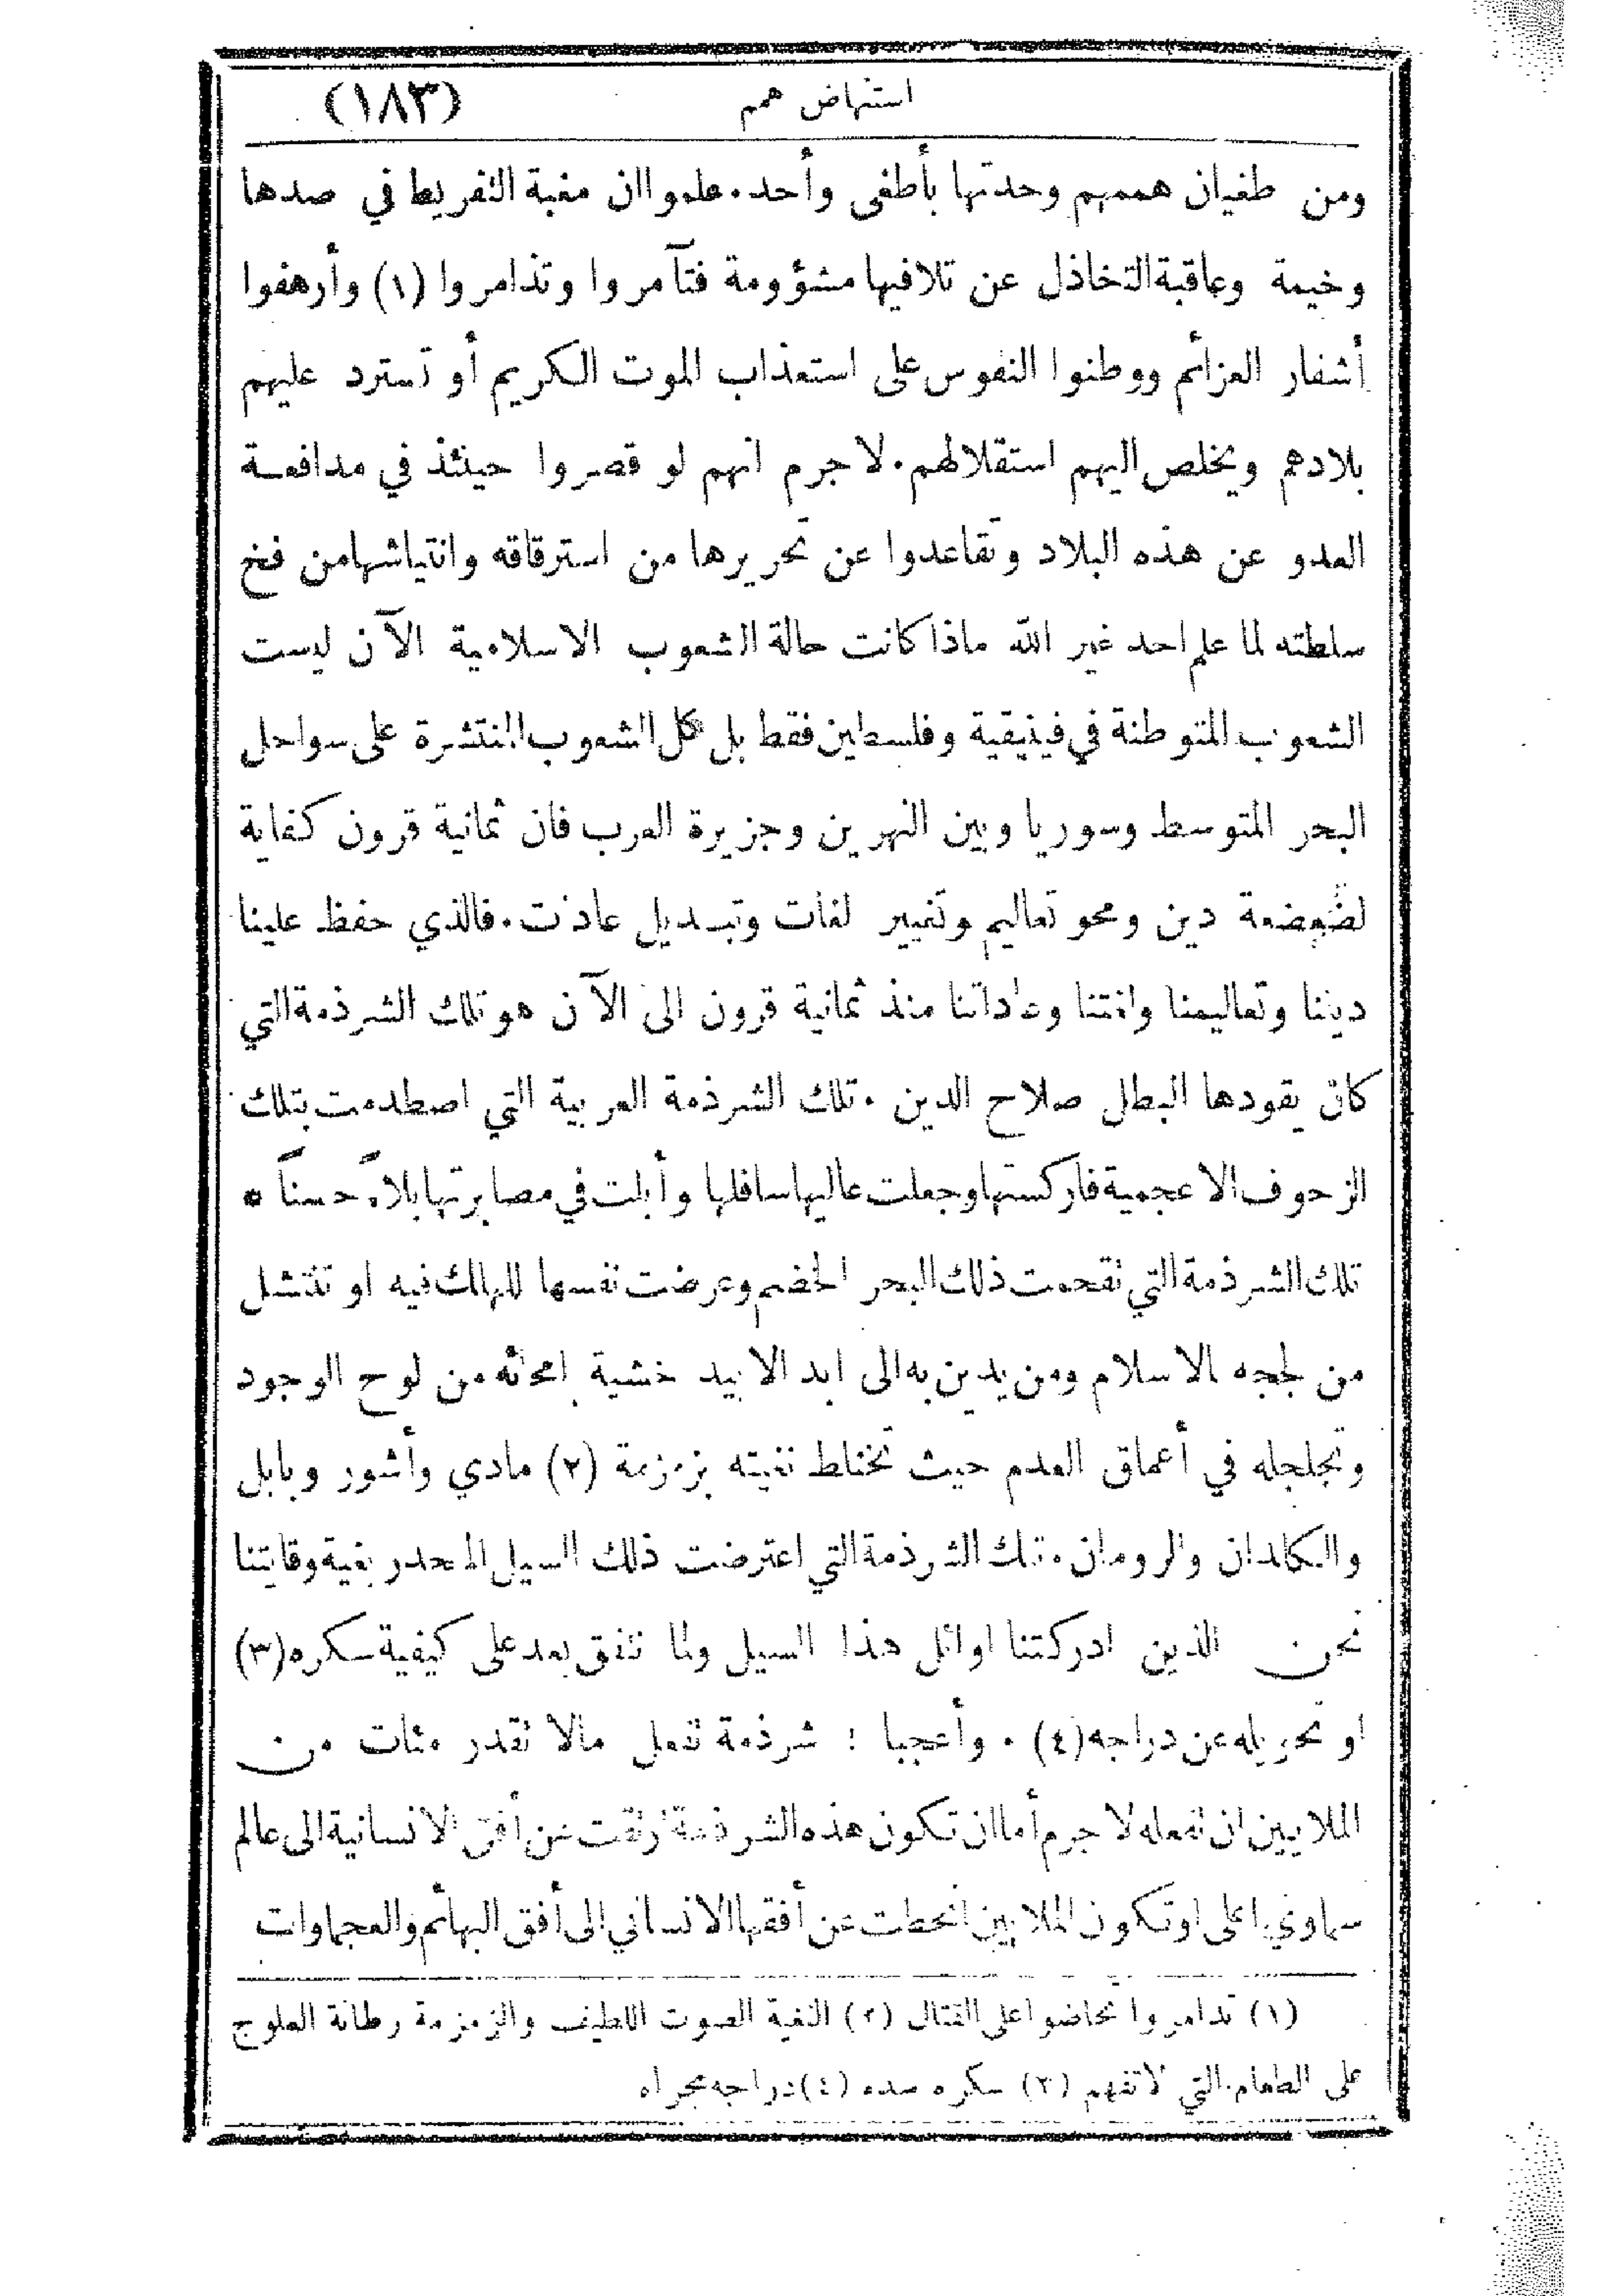 استنهاض همم (١٨٣)
ومن طغيان هممهم وحدتها بأطغى وأحد. علموا ان مغبة التفريط في صدها
وخيمة وعاقبة التخاذل عن تلافيها مشؤومة فتآمروا وتذامروا (١) وأرهفوا
أشفار العزائم ووطنوا النفوس على استعذاب الموت الكريم أو تسترد عليهم
بلادهم ويخلص اليهم استقلالهم. لا جرم انهم لو قصروا حينئذ في مدافعة
العدو عن هذه البلاد وتقاعدوا عن تحريرها من استرقاقه وانتياشها من فخ
سلطته لما علم احد غير الله ماذا كانت حالة الشعوب الاسلامية الآن ليست
الشعوب المتوطنة في فينيقية وفلسطين فقط بل كل الشعوب المنتشرة على سواحل
البحر المتوسط وسوريا وبين النهرين وجزيرة العرب فان ثمانية قرون كفاية
لضعضعة دين ومحو تعاليم وتغيير لغات وتبديل عادات. فالذي حفظ علينا
ديننا وتعاليمنا ولغتنا وعاداتنا منذ ثمانية قرون الى الآن هو تلك الشرذمة التي
كان يقودها البطل صلاح الدين. تلك الشرذمة العربية التي اصطدمت بتلك
الزحوف الاعجمية فاركستها وجعلت عاليها سافلها وأبلت في مصابرتها بلاءً حسناً *
تلك الشرذمة التي تقحمت ذلك البحر الخضم وعرضت نفسها للهلك فيه او تنتشل
من لججه الاسلام ومن يدين به الى ابد الابيد خشية امحائه من لوح الوجود
وتجلجله في أعماق العدم حيث تختلط نغيته بزمزمة (٢) مادي وأشور وبابل
والكلدان والرومان. تلك الشرذمة التي اعترضت ذلك السيل المنحدر بغية وقايتنا
نحن الذين ادركتنا اوائل هذا السيل ولما نتفق بعد على كيفية سكره (٣)
او تحويله عن دراجه (٤). وأعجبا ! شرذمة تفعل مالا تقدر مئات من
الملايين ان تفعله لا جرم أما ان تكون هذه الشرذمة ارتقت عن أفق الانسانية الى عالم
سماوي اعلى او تكون الملايين انحطت عن أفقها الانساني الى أفق البهائم والعجماوات
(١) تذامروا تحاضوا على القتال (٢) النغية الصوت اللطيف والزمزمة رطانة العلوج
على الطعام التي لا تفهم (٣) سكره سده (٤) دراجه مجراه